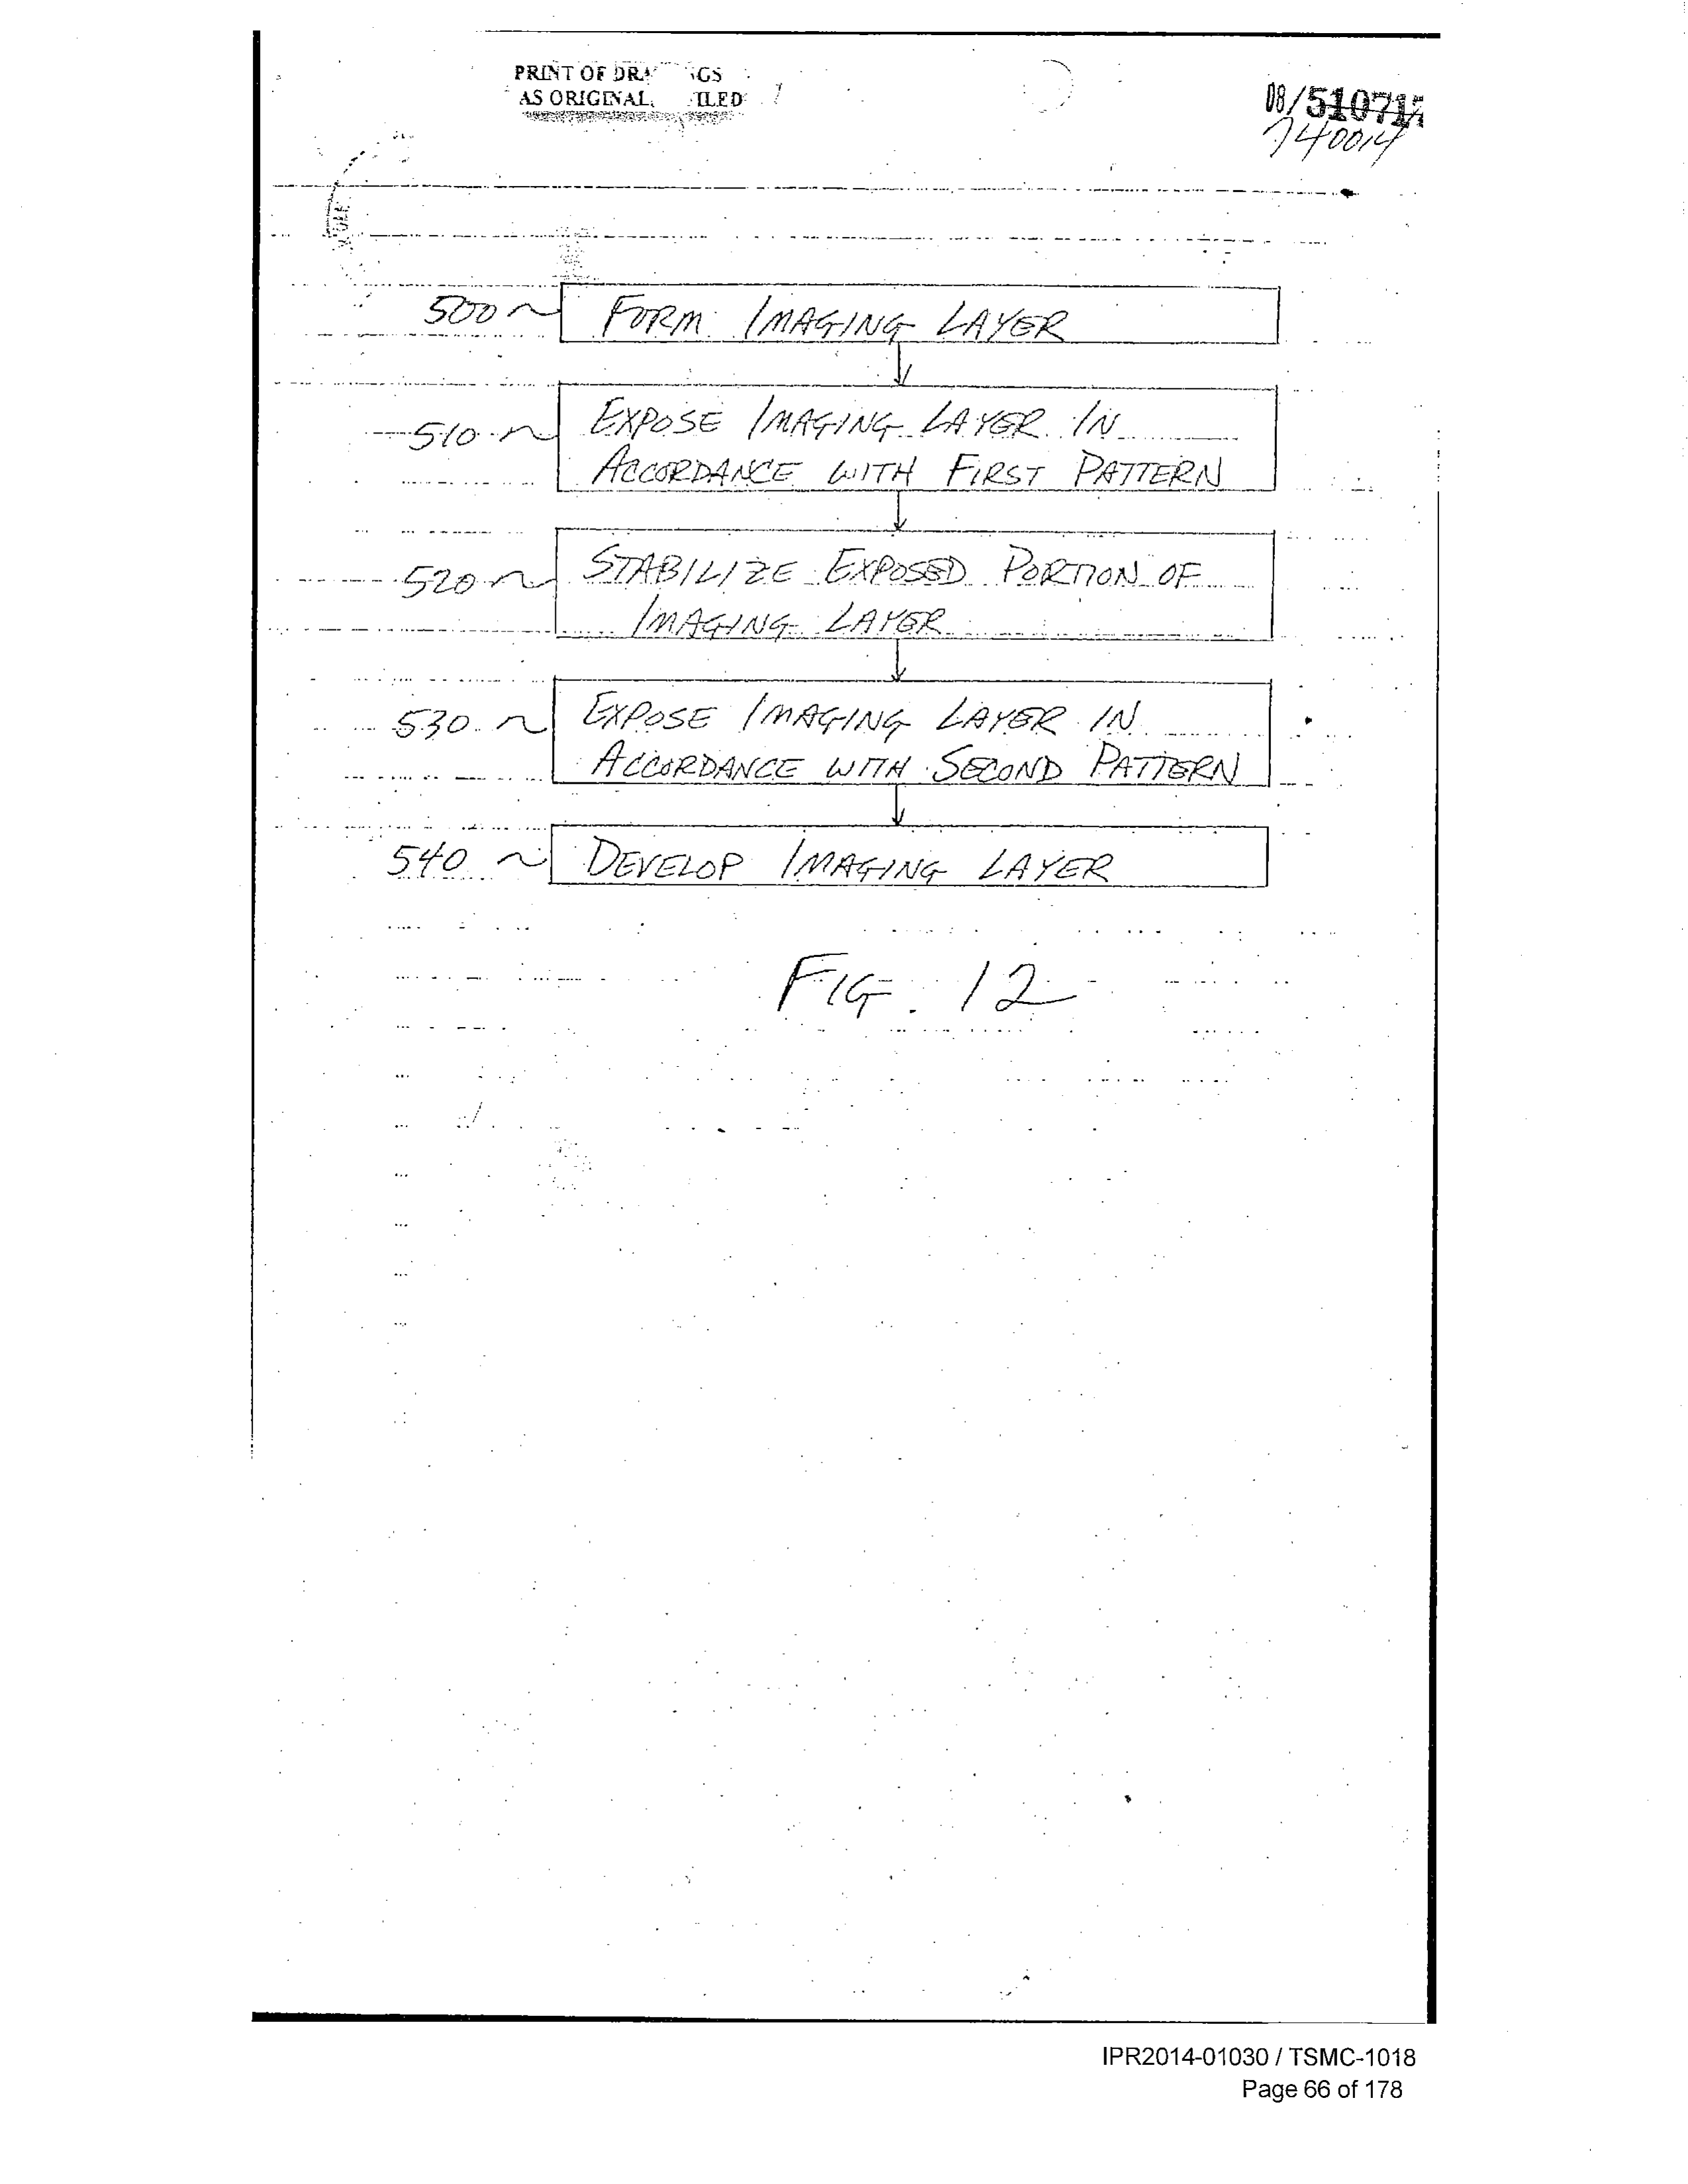 PRINT OF DRA GS
AS ORIGINAL ILED
08/510717
740014
500 FORM IMAGING LAYER
510 EXPOSE IMAGING LAYER IN
ACCORDANCE WITH FIRST PATTERN
520 STABILIZE EXPOSED PORTION OF
IMAGING LAYER
530 EXPOSE IMAGING LAYER IN
ACCORDANCE WITH SECOND PATTERN
540 DEVELOP IMAGING LAYER
FIG. 12
IPR2014-01030 / TSMC-1018
Page 66 of 178